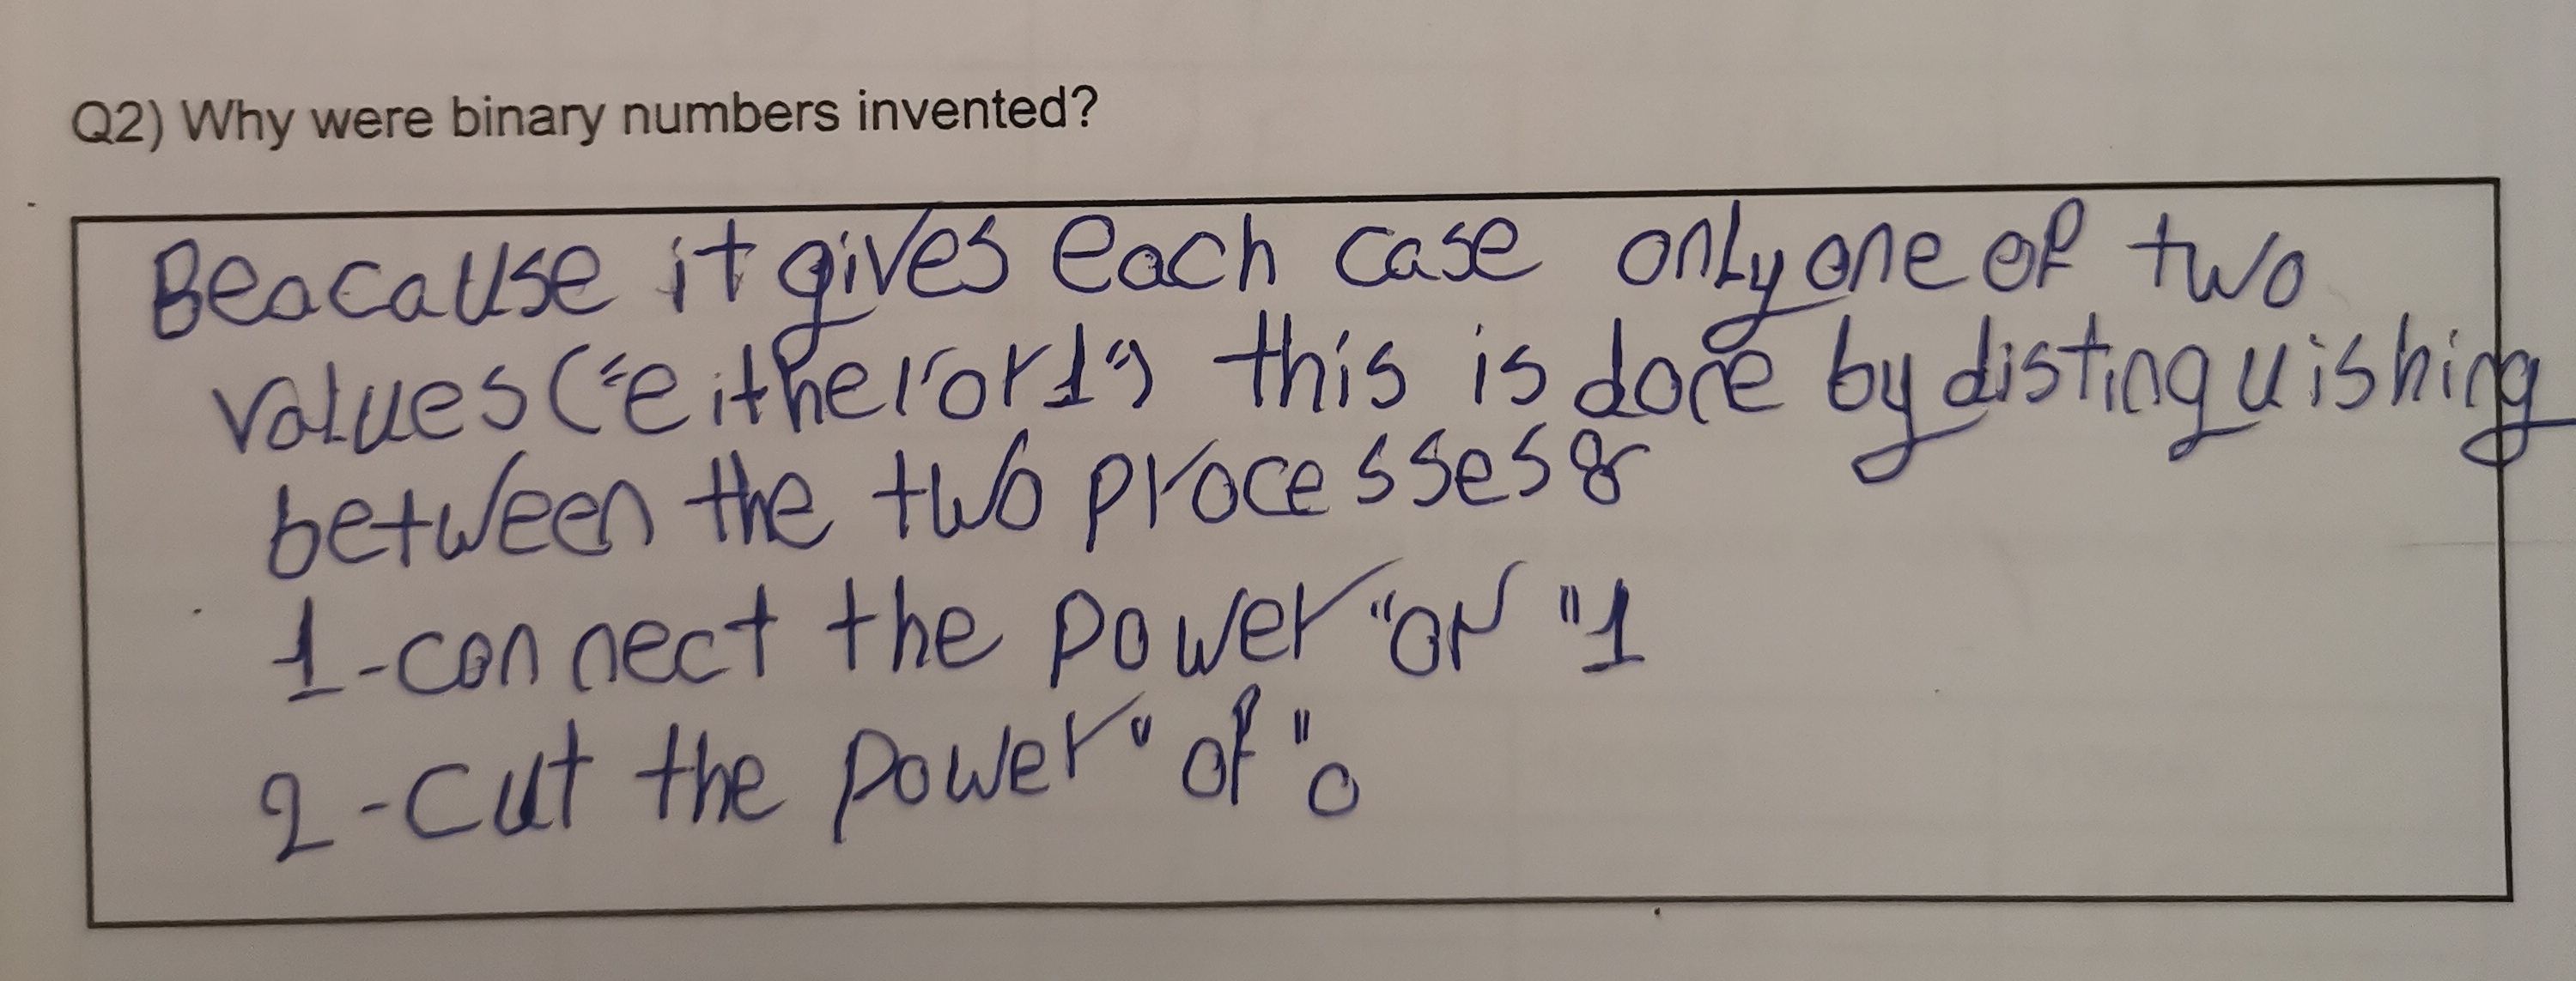 Q2) Why were binary numbers invented?
Beacause it gives each case only one of two
values ("either "or 1") this is done by distinguishing
between the two processes:
1-connect the power "or "1
2-cut the power "of "0